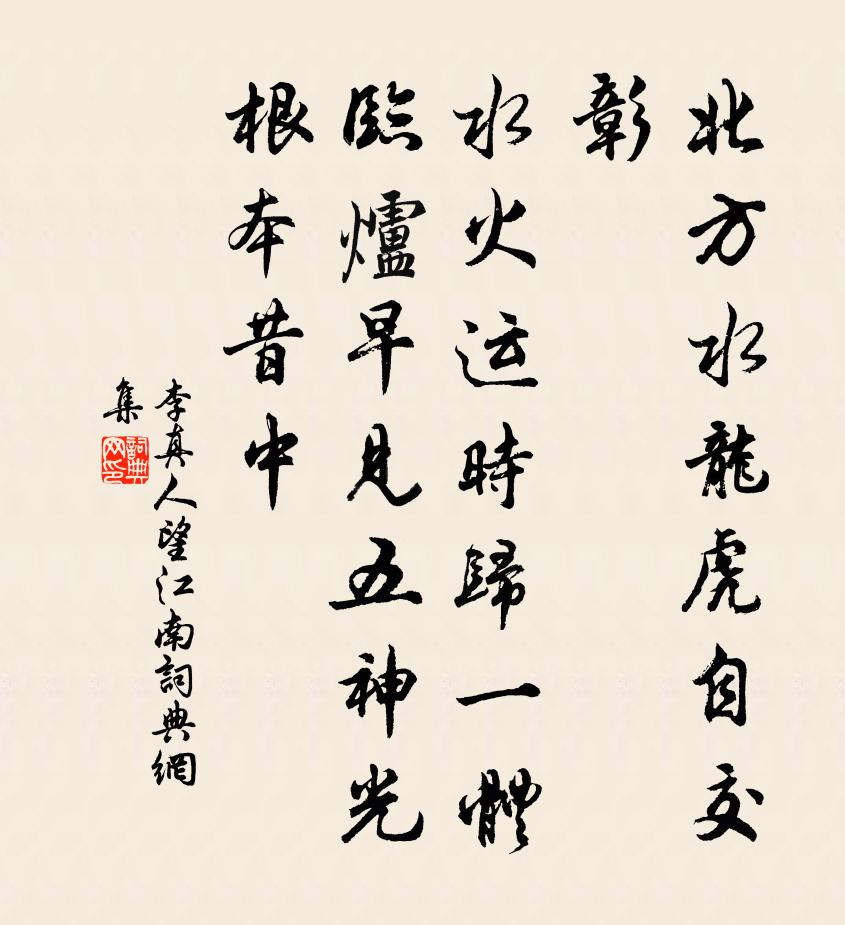 北方水龍虎自交
彰
水火运時歸一體
臨爐早見五神光
根本昔中
李真人望江南詞典網
集
詞典網印